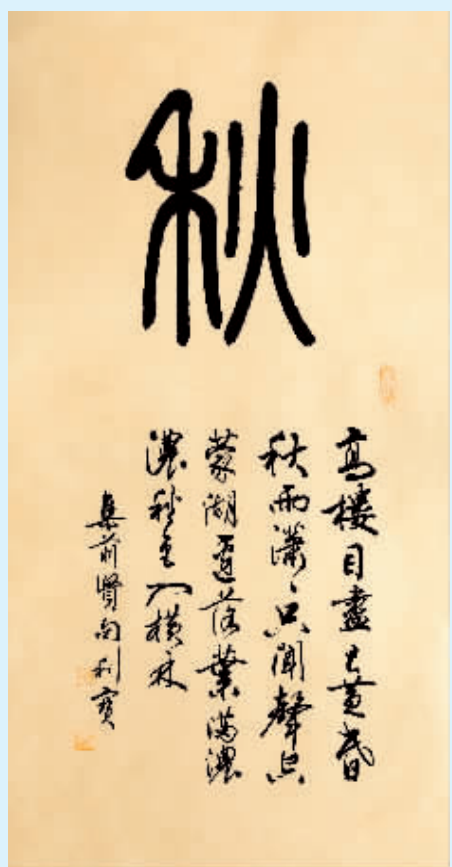 秋
高樓目盡已黃昏
秋雨瀟瀟只聞聲空
蒙湖邊落葉滿濃
濃秋意入橫林
集前賢句利寶